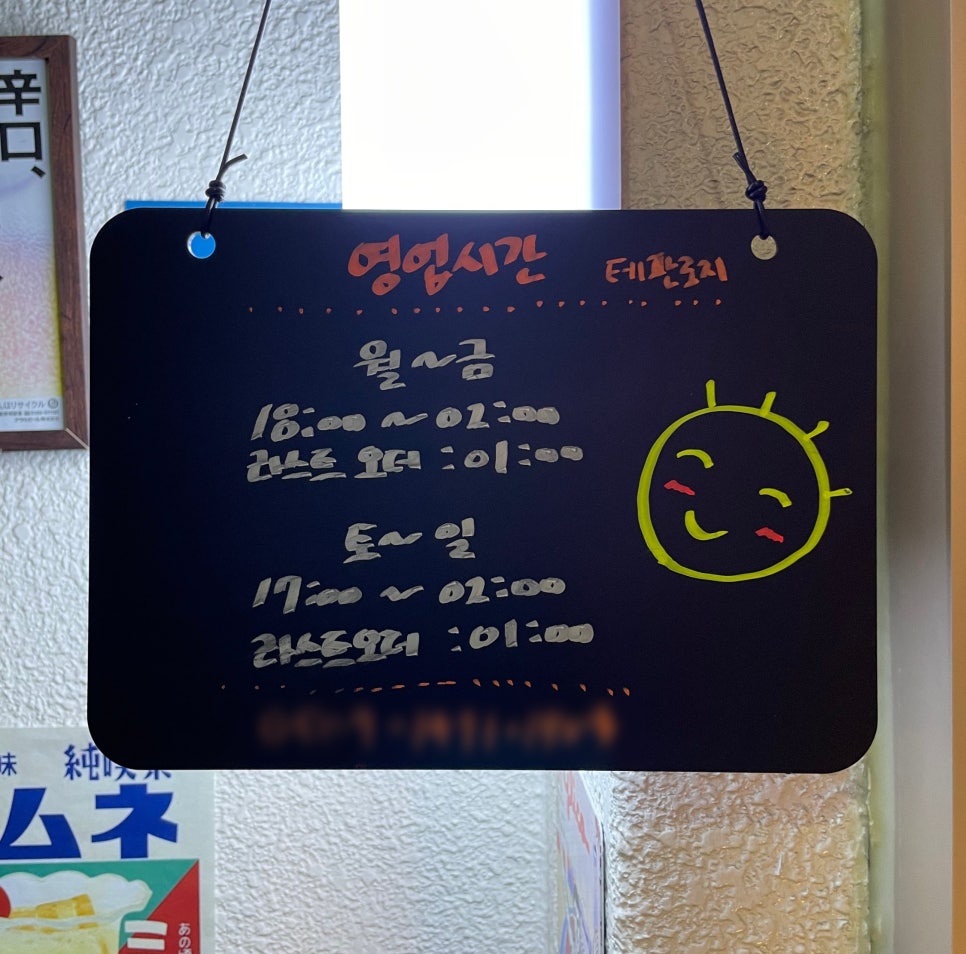 辛
口、
영업시간 테판로지
월~금
18:00 ~ 02:00
라스트 오더 :01:00
토~일
17:00 ~ 02:00
라스트오더 :01:00
味 純喫茶
ムネ
あの